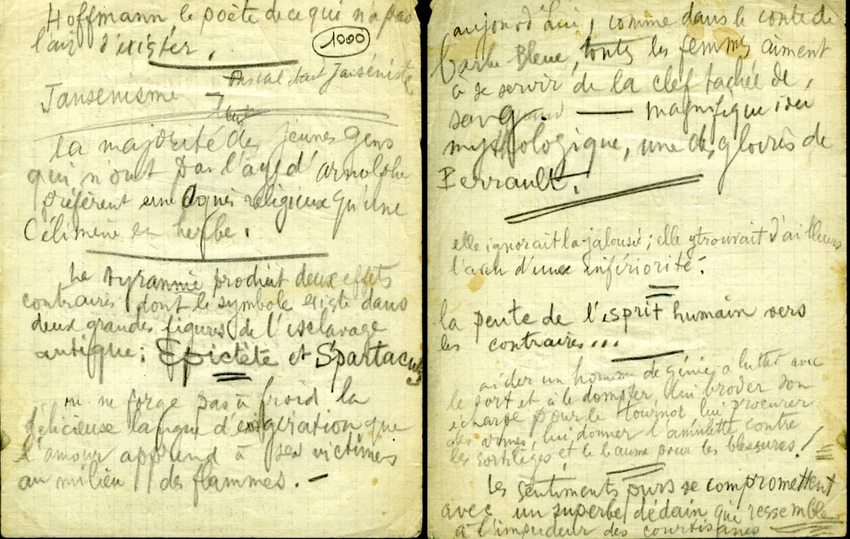 Hoffmann le poète de ce qui n'a pas
l'air d'exister.
1000
Pascal était Janséniste
Jansénisme
La majorité des jeunes gens
qui n'ont pas l'age d'Arnolphe
préfèrent une Agnès religieuse qu'une
Célimène en herbe.
La tyrannie produit deux effets
contraires dont le symbole existe dans
deux grandes figures de l'esclavage
antique : Epictète et Spartacus
on ne forge pas à froid la
délicieuse langue d'exagération que
l'amour apprend à ses victimes
au milieu des flammes. —
aujourd'hui, comme dans le conte de
Barbe Bleue, toutes les femmes aiment
à se servir de la clef tachée de
sang. — magnifique idée
mythologique, une des gloires de
Perrault.
elle ignorait la jalousie ; elle y trouvait d'ailleurs
l'aveu d'une infériorité.
la pente de l'esprit humain vers
les contraires...
aider un homme de génie à lutter avec
le sort et à le dompter, lui broder son
écharpe pour le tournoi lui procurer
des armes, lui donner l'amulette contre
les sortilèges et le baume pour les blessures !
Les sentiments purs se compromettent
avec un superbe dédain qui ressemble
à l'impudeur des courtisanes